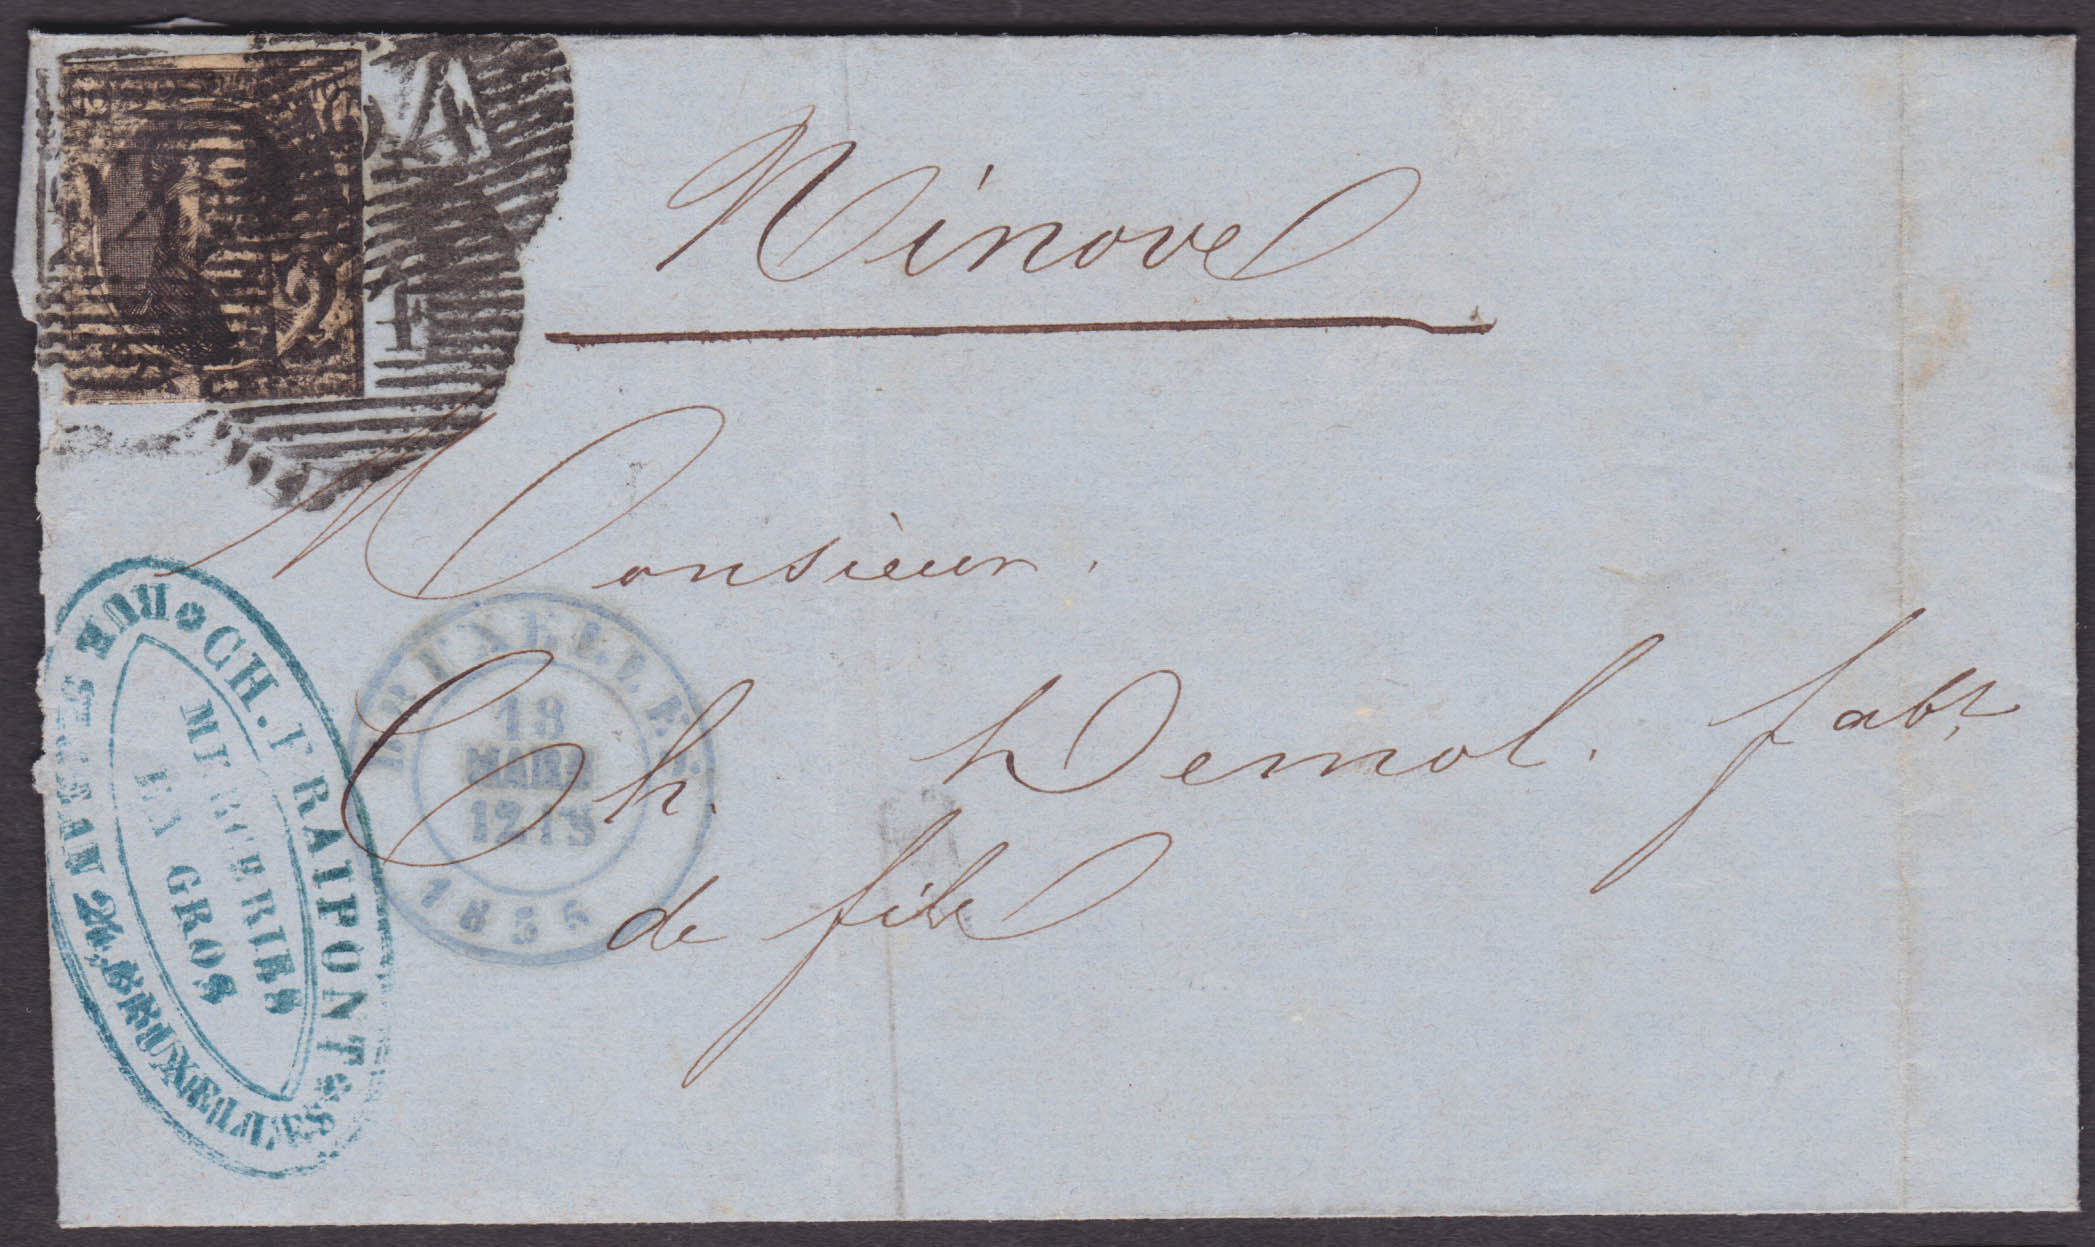 24
Ninove
Monsieur.
Ch. Demol. fabt
de fils
BRUXELLES
18
MARS
12 1 S
1855
CH. FRAIPONT
RUE ST JEAN 24. BRUXELLES
MERCERIES
EN GROS